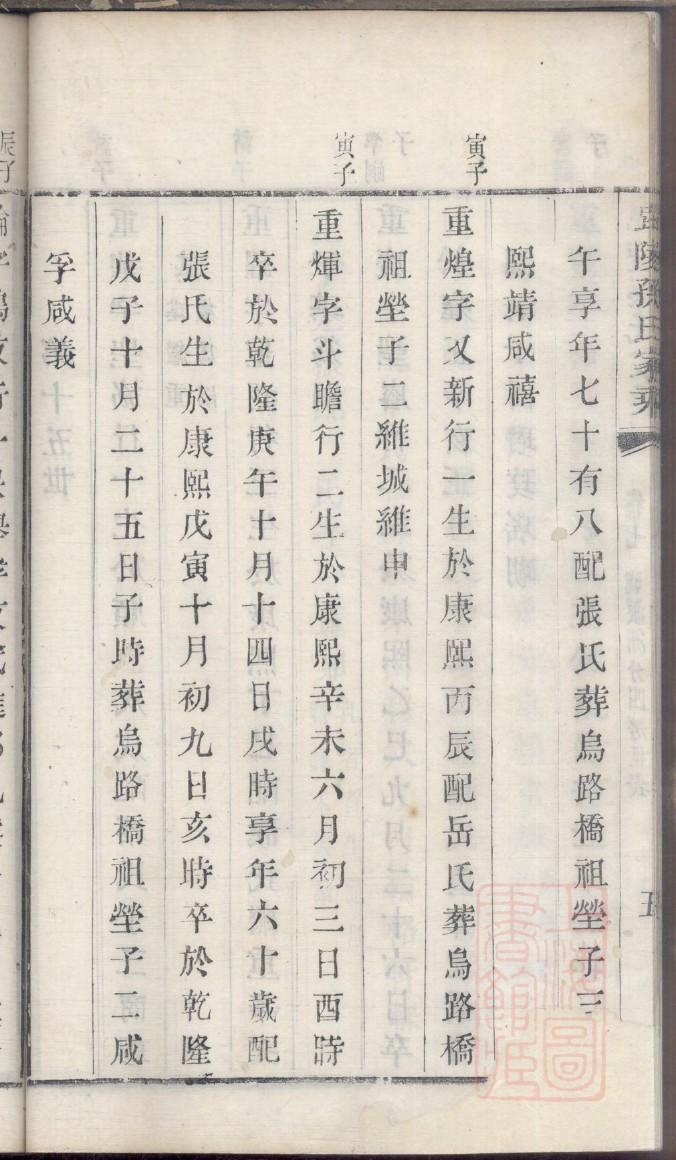 毘陵孫氏家乘
五
午享年七十有八配張氏葬烏路橋祖塋子三
熙靖咸禧
寅子
重煌字又新行一生於康熙丙辰配岳氏葬烏路橋
祖塋子二維城維申
寅子
重煇字斗瞻行二生於康熙辛未六月初三日酉時
卒於乾隆庚午十月十四日戌時享年六十歲配
張氏生於康熙戊寅十月初九日亥時卒於乾隆
戊子十月二十五日子時葬烏路橋祖塋子二咸
孚咸義
上海圖書館藏